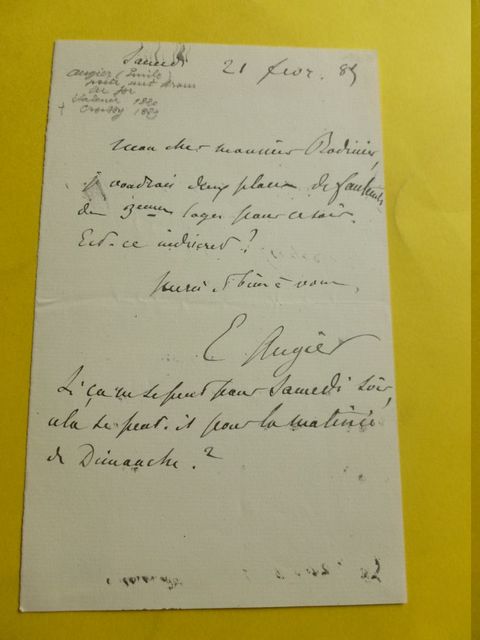 Samedi 21 fevr. 85
Augier (Emile)
poete aut dram
Valence 1820
Croissy 1889
mon cher monsieur Bodinier,
je voudrais deux places de fauteuils
de 2emes loges pour ce soir.
Est-ce indiscret ?
merci et bien à vous,
E Augier
Si ça ne se peut pour Samedi soir,
cela se peut-il pour la matinée
de Dimanche. ?